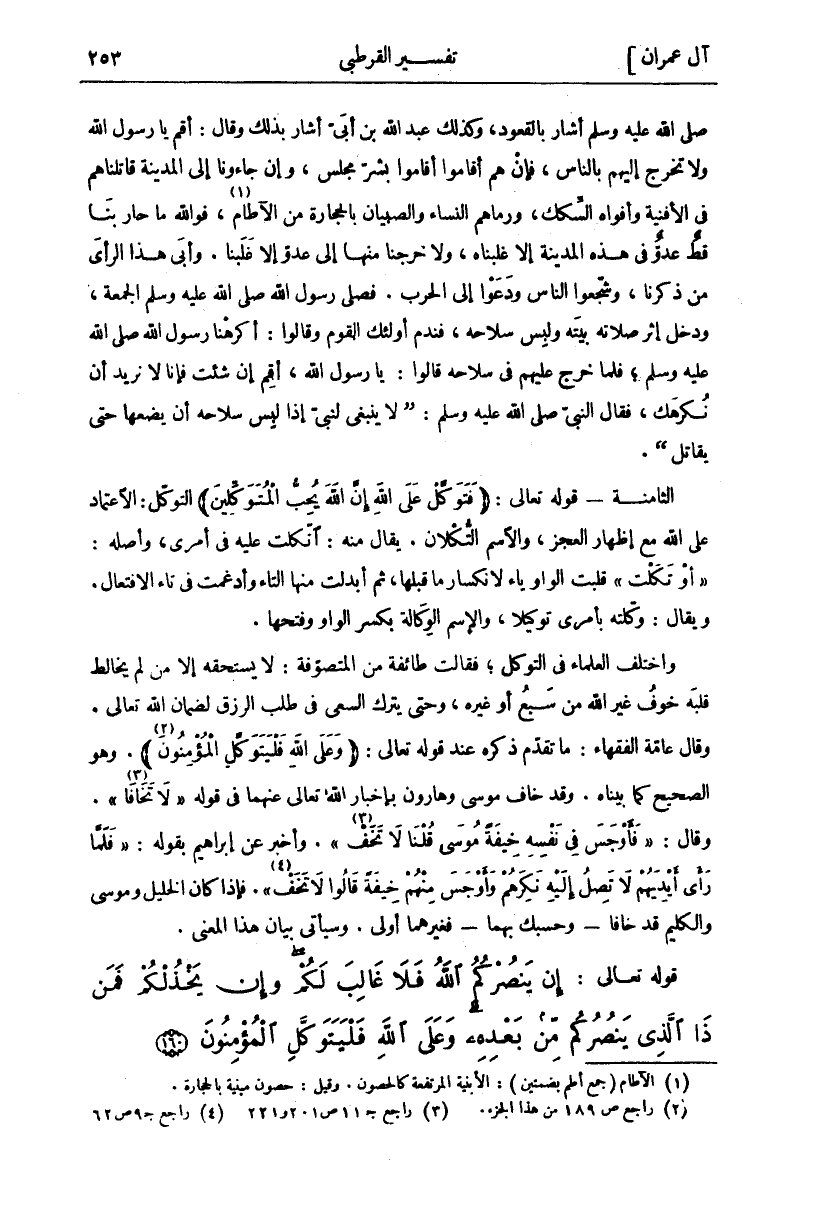 آل عمران ] تفسير القرطبي ٢٥٣
صلى الله عليه وسلم أشار بالقعود، وكذلك عبد الله بن أبىّ أشار بذلك وقال : أقم يا رسول الله
ولا تخرج إليهم بالناس ، فإنْ هم أقاموا أقاموا بشرّ مجلس ، وإن جاءونا إلى المدينة قاتلناهم
فى الأفنية وأفواه السِّكك، ورماهم النساء والصبيان بالحجارة من الآطام (١) ، فوالله ما حاربنَا
قطُّ عدوٌّ فى هذه المدينة إلا غلبناه ، ولا خرجنا منها إلى عدوّ إلا غَلَبنا . وأبَى هذا الرأىَ
من ذكرنا ، وشجّعوا الناس ودَعَوْا إلى الحرب . فصلى رسول الله صلى الله عليه وسلم الجمعة ،
ودخل إثر صلاته بيتَه ولبِس سلاحه ، فندم أولئك القوم وقالوا : أكرهْنا رسول الله صلى الله
عليه وسلم ؛ فلما خرج عليهم فى سلاحه قالوا : يا رسول الله ، أقِم إن شئت فإنا لا نريد أن
نُكرهَك ، فقال النبىّ صلى الله عليه وسلم : ” لا ينبغى لنبىّ إذا لبِس سلاحه أن يضعها حتى
يقاتل “ .
الثامنة – قوله تعالى : ﴿ فَتَوَكَّلْ عَلَى اللهِ إِنَّ اللهَ يُحِبُّ الْمُتَوَكِّلِينَ ﴾ التوكّل: الاعتماد
على الله مع إظهار العجز ، والاسم التُّكْلان . يقال منه : اتّكلت عليه فى أمرى، وأصله :
« اوْتَكَلْت » قلبت الواو ياء لانكسار ما قبلها، ثم أبدلت منها التاء وأدغمت فى تاء الافتعال.
ويقال : وكّلته بأمرى توكيلا ، والإسم الوِكالة بكسر الواو وفتحها .
واختلف العلماء فى التوكل ؛ فقالت طائفة من المتصوّفة : لا يستحقه إلا من لم يخالط
قلبَه خوفُ غير الله من سَبعُ أو غيره ، وحتى يترك السعى فى طلب الرزق لضمان الله تعالى .
وقال عامّة الفقهاء : ما تقدّم ذكره عند قوله تعالى : ﴿ وَعَلَى اللهِ فَلْيَتَوَكَّلِ الْمُؤْمِنُونَ (٢) ﴾ . وهو
الصحيح كما بيناه . وقد خاف موسى وهارون بإخبار الله تعالى عنهما فى قوله « لَا تَخَافَا (٣) » .
وقال : « فَأَوْجَسَ فِى نَفْسِهِ خِيفَةً مُوسَى قُلْنَا لَا تَخَفْ (٣) » . وأخبر عن إبراهيم بقوله : « فَلَمَّا
رَأَى أَيْدِيَهُمْ لَا تَصِلُ إِلَيْهِ نَكِرَهُمْ وَأَوْجَسَ مِنْهُمْ خِيفَةً قَالُوا لَا تَخَفْ (٤) ». فإذا كان الخليل وموسى
والكليم قد خافا – وحسبك بهما – فغيرهما أولى . وسيأتى بيان هذا المعنى .
قوله تعالى : إِن يَنصُرْكُمُ ٱللَّهُ فَلَا غَالِبَ لَكُمْ ۖ وَإِن يَخْذُلْكُمْ فَمَن
ذَا ٱلَّذِى يَنصُرُكُم مِّنۢ بَعْدِهِۦ ۗ وَعَلَى ٱللَّهِ فَلْيَتَوَكَّلِ ٱلْمُؤْمِنُونَ ١٦٠
(١) الآطام ( جمع أطم بضمتين ) : الأبنية المرتفعة كالحصون . وقيل : حصون مبنية بالحجارة .
(٢) راجع ص ١٨٩ من هذا الجزء. (٣) راجع جـ ١١ ص ٢٠١ و ٢٢١ (٤) راجع جـ ٩ ص ٦٢